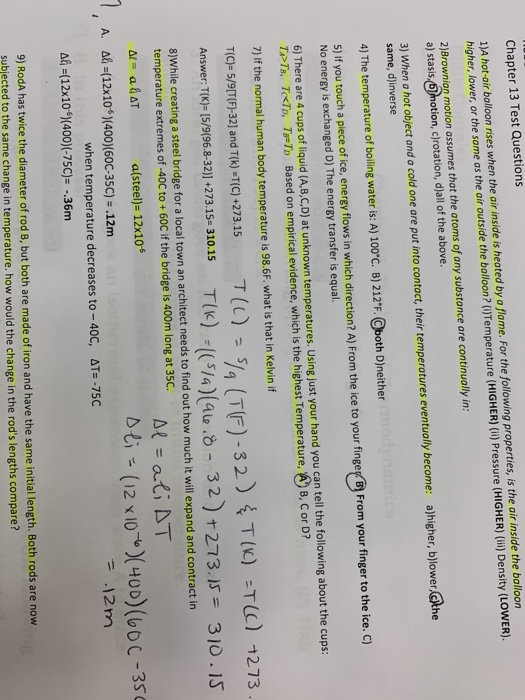 Chapter 13 Test Questions
1)A hot-air balloon rises when the air inside is heated by a flame. For the following properties, is the air inside the balloon
higher, lower, or the same as the air outside the balloon? (i)Temperature (HIGHER) (ii) Pressure (HIGHER) (iii) Density (LOWER).
2)Brownian motion assumes that the atoms of any substance are continually in:
a) stasis, b)motion, c)rotation, d)all of the above.
3) When a hot object and a cold one are put into contact, their temperatures eventually become: a)higher, b)lower, c)the
same, d)inverse
4) The temperature of boiling water is: A) 100°C. B) 212°F. C)both D)neither
5) If you touch a piece of ice, energy flows in which direction? A) From the ice to your finger B) From your finger to the ice. C)
No energy is exchanged D) The energy transfer is equal.
6) There are 4 cups of liquid (A,B,C,D) at unknown temperatures. Using just your hand you can tell the following about the cups:
TA>TB, TC<TD, TB=TD Based on empirical evidence, which is the highest Temperature, A) B, C or D?
7) If the normal human body temperature is 98.6F. what is that in Kelvin if
T(C)= 5/9[T(F)-32] and T(k) =T(C) +273.15
T(C) = 5/9 (T(F) - 32) & T(K) = T(C) +273.
Answer: T(K)= [5/9(96.8-32)] +273.15= 310.15
T(K) = ((5/9)(96.8 - 32) +273.15 = 310.15
8)While creating a steel bridge for a local town an architect needs to find out how much it will expand and contract in
temperature extremes of -40C to + 60C if the bridge is 400m long at 35C.
Δl= αliΔT α(steel)= 12x10-6
Δl = αli ΔT
A. Δli =(12x10-6)(400)(60C-35C) = .12m
Δli = (12 x 10-6)(400)(60C - 35C
= .12m
when temperature decreases to – 40C, ΔT= -75C
Δli =(12x10-6)(400)(-75C)= -.36m
9) RodA has twice the diameter of rod B, but both are made of iron and have the same initial length. Both rods are now
subjected to the same change in temperature. how would the change in the rod's lengths compare?